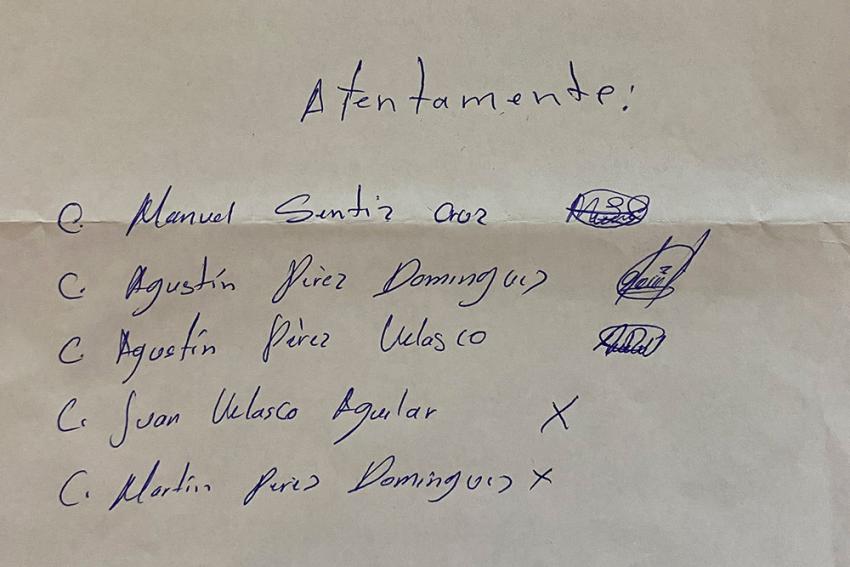 Atentamente:
C. Manuel Sentiz Cruz
C. Agustín Pérez Domínguez
C. Agustín Pérez Velasco
C. Juan Velasco Aguilar X
C. Martín Pérez Domínguez X